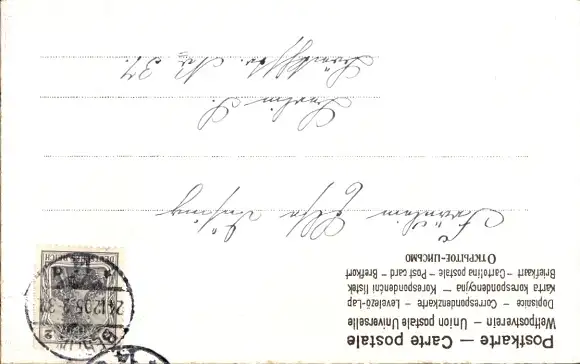 Postkarte — Carte postale
Weltpostverein — Union postale Universelle
Dopisnice — Correspondenzkarte — Levelező-Lap
Karta korespondencyjna — Korespondenční lístek
Briefkaart — Cartolina postale — Post card — Brefkort
ОТКРЫТОЕ-ПИСЬМО
Fräulein Elsa
Berlin S.
No 37.
BERLIN
24.12.05
DEUTSCHES REICH
2